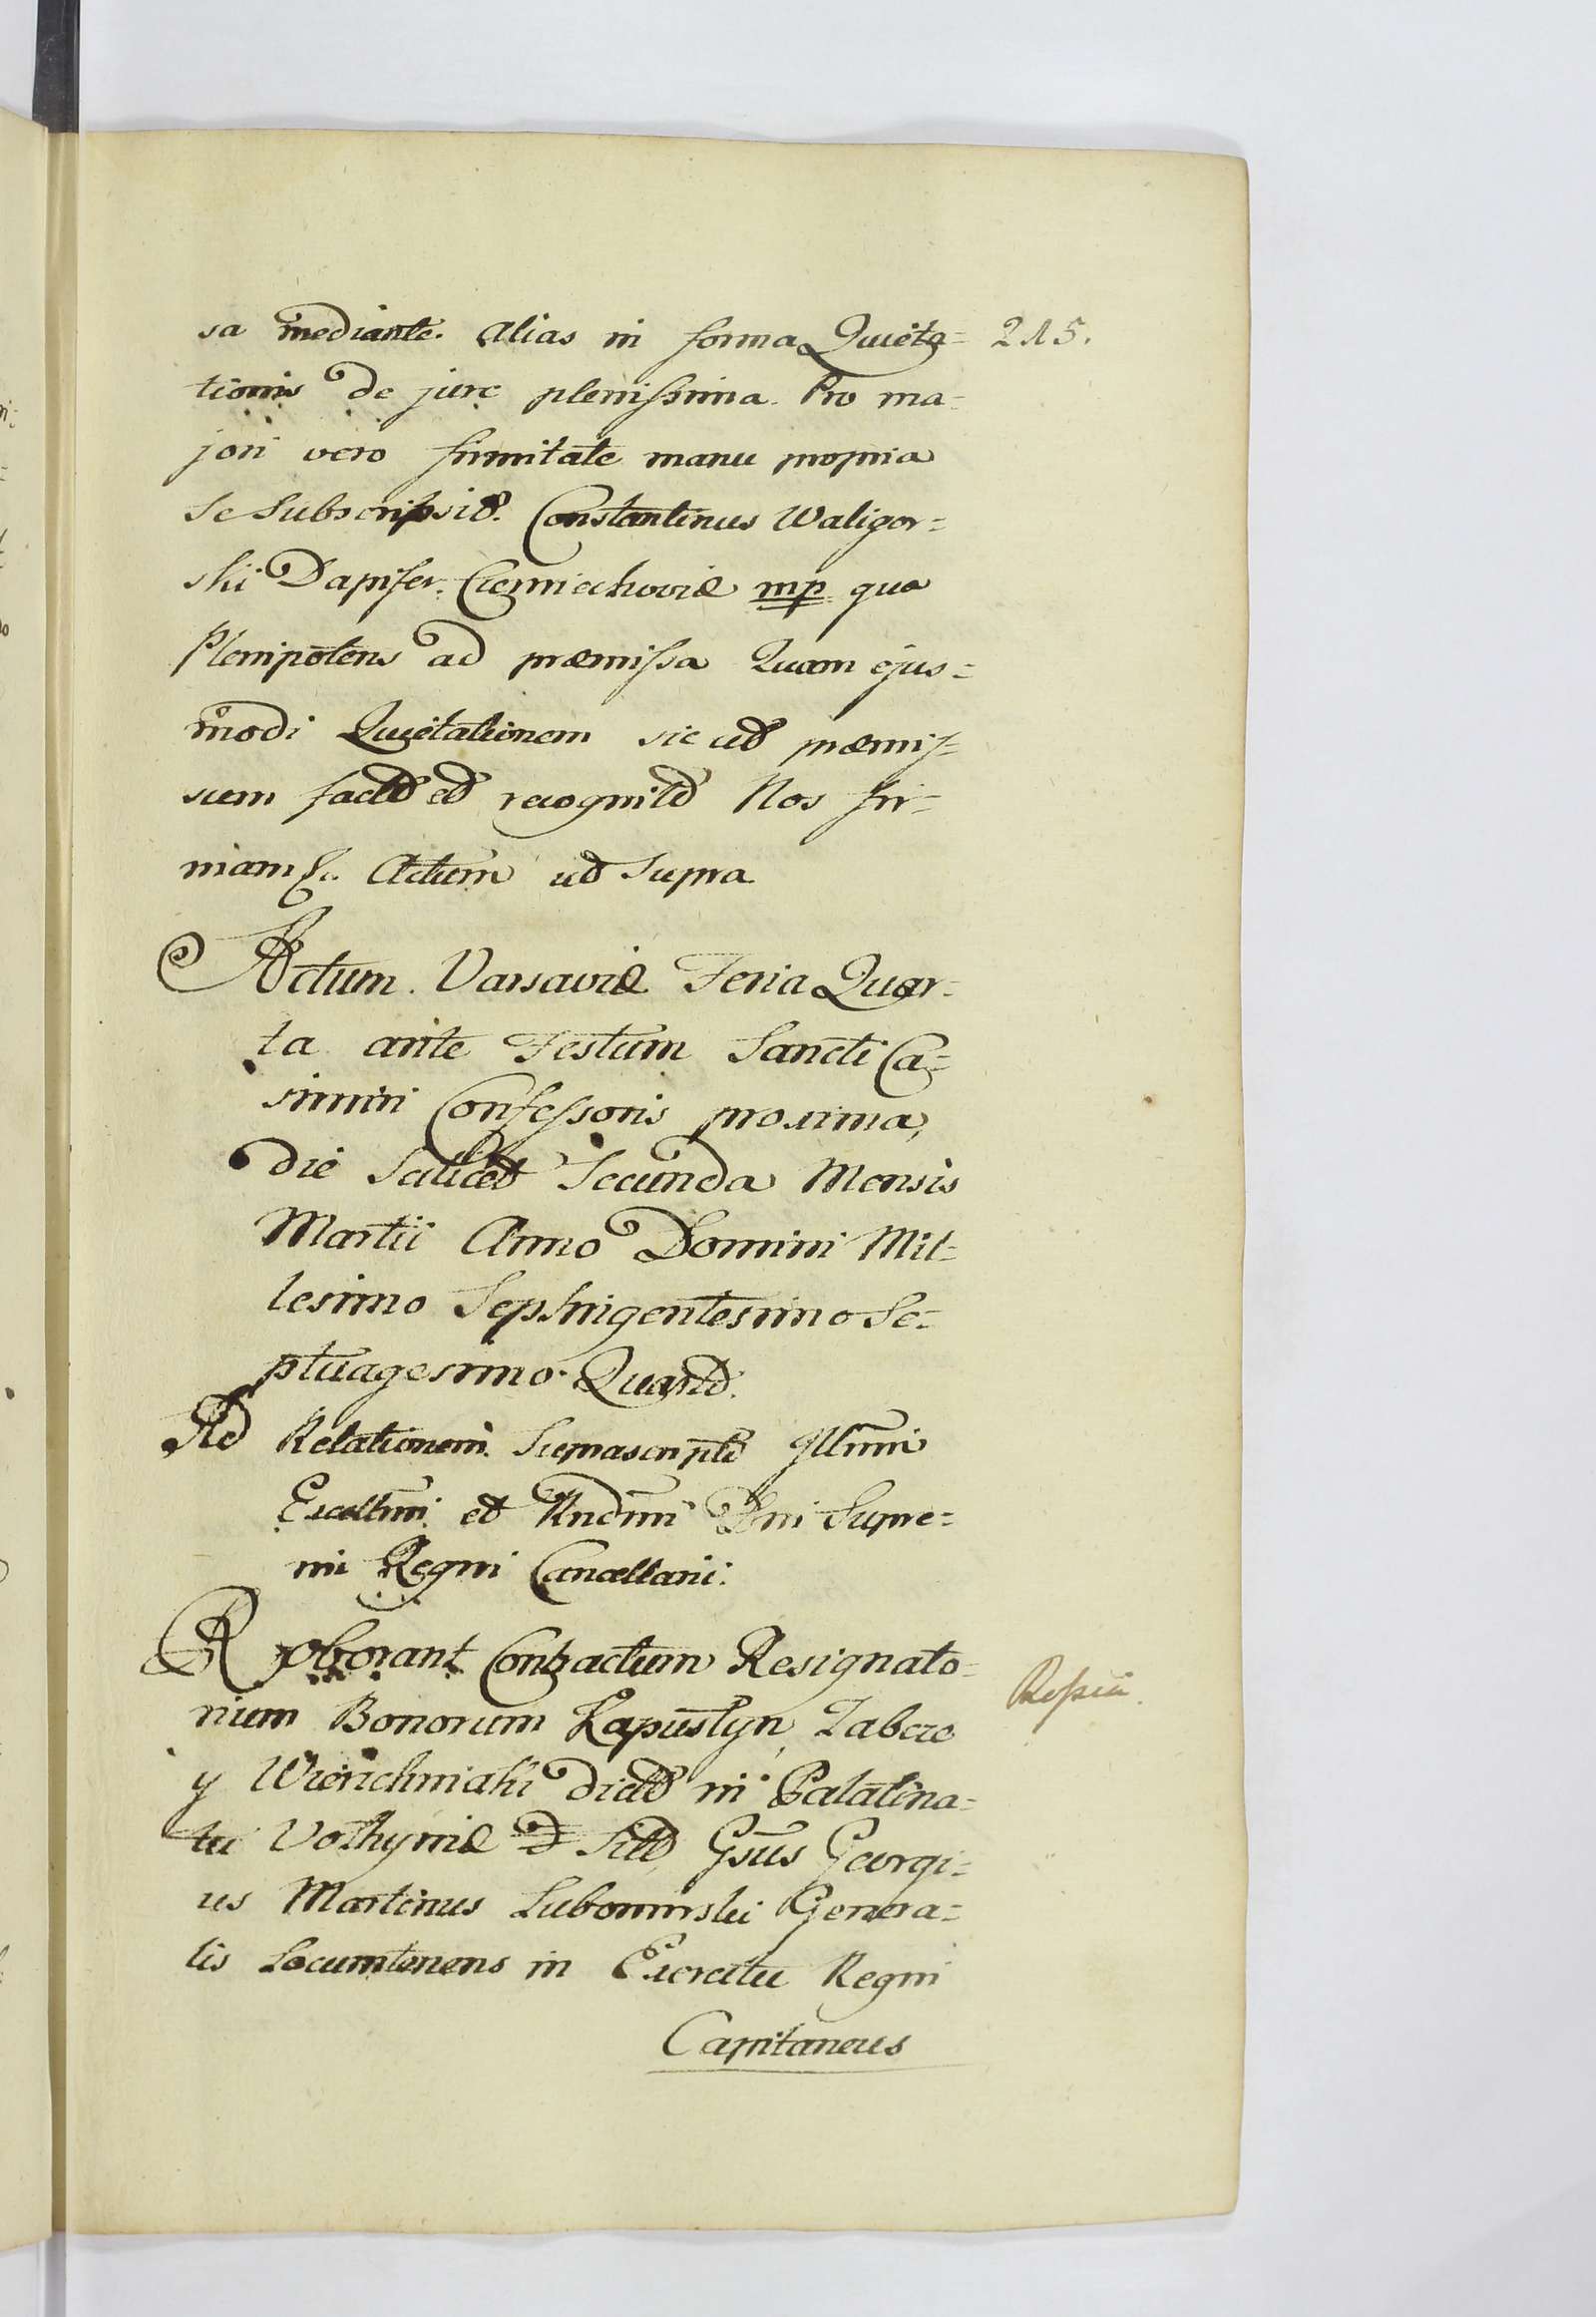 sa mediante. Alias in forma Quieta= 215.
tionis de jure plenissima. Pro ma=
jori vero firmitate manu propria
se subscripsit. Constantinus Waligor=
ski Dapifer Czerniechoviæ mp qua
Plenipotens ad præmissa Quam ejus=
modi Quietationem sic ut præmis=
sum fact et recognit Nos fir=
miam &c. Actum ut supra
Actum Varsaviæ Feria Quar=
ta ante Festum Sancti Ca=
simiri Confessoris proxima,
die Scilicet Secunda Mensis
Martii Anno Domini Mil=
lesimo Septingentesimo Se=
ptuagesimo Quarto.
Ad Relationem Suprascripti Illmi
Excellmi et Rndmi Dni Supre=
mi Regni Cancellarii.
Roborant Contractum Resignato=
rium Bonorum Kapustyn, Zabcze
y Wierichniaki dict in Palatina=
tu Volhyniæ Sitt Gsus Georgi=
us Martinus Lubomirski Genera=
lis Locumtenens in Exercitu Regni
Capitaneus